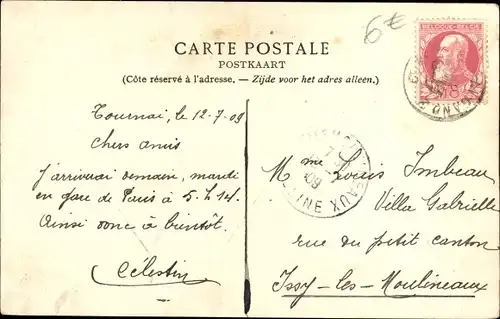 6€
CARTE POSTALE
POSTKAART
(Côte réservé à l'adresse. – Zijde voor het adres alleen.)
BELGIQUE · BELGIË
Tournai, le 12-7-09
Chers amis
J'arriverai demain, mardi
en gare de Paris à 5 h 14.
Ainsi donc à bientôt.
Célestin
Mme Louis Imbeau
Villa Gabrielle
rue du petit canton
Issy-les-Moulineaux